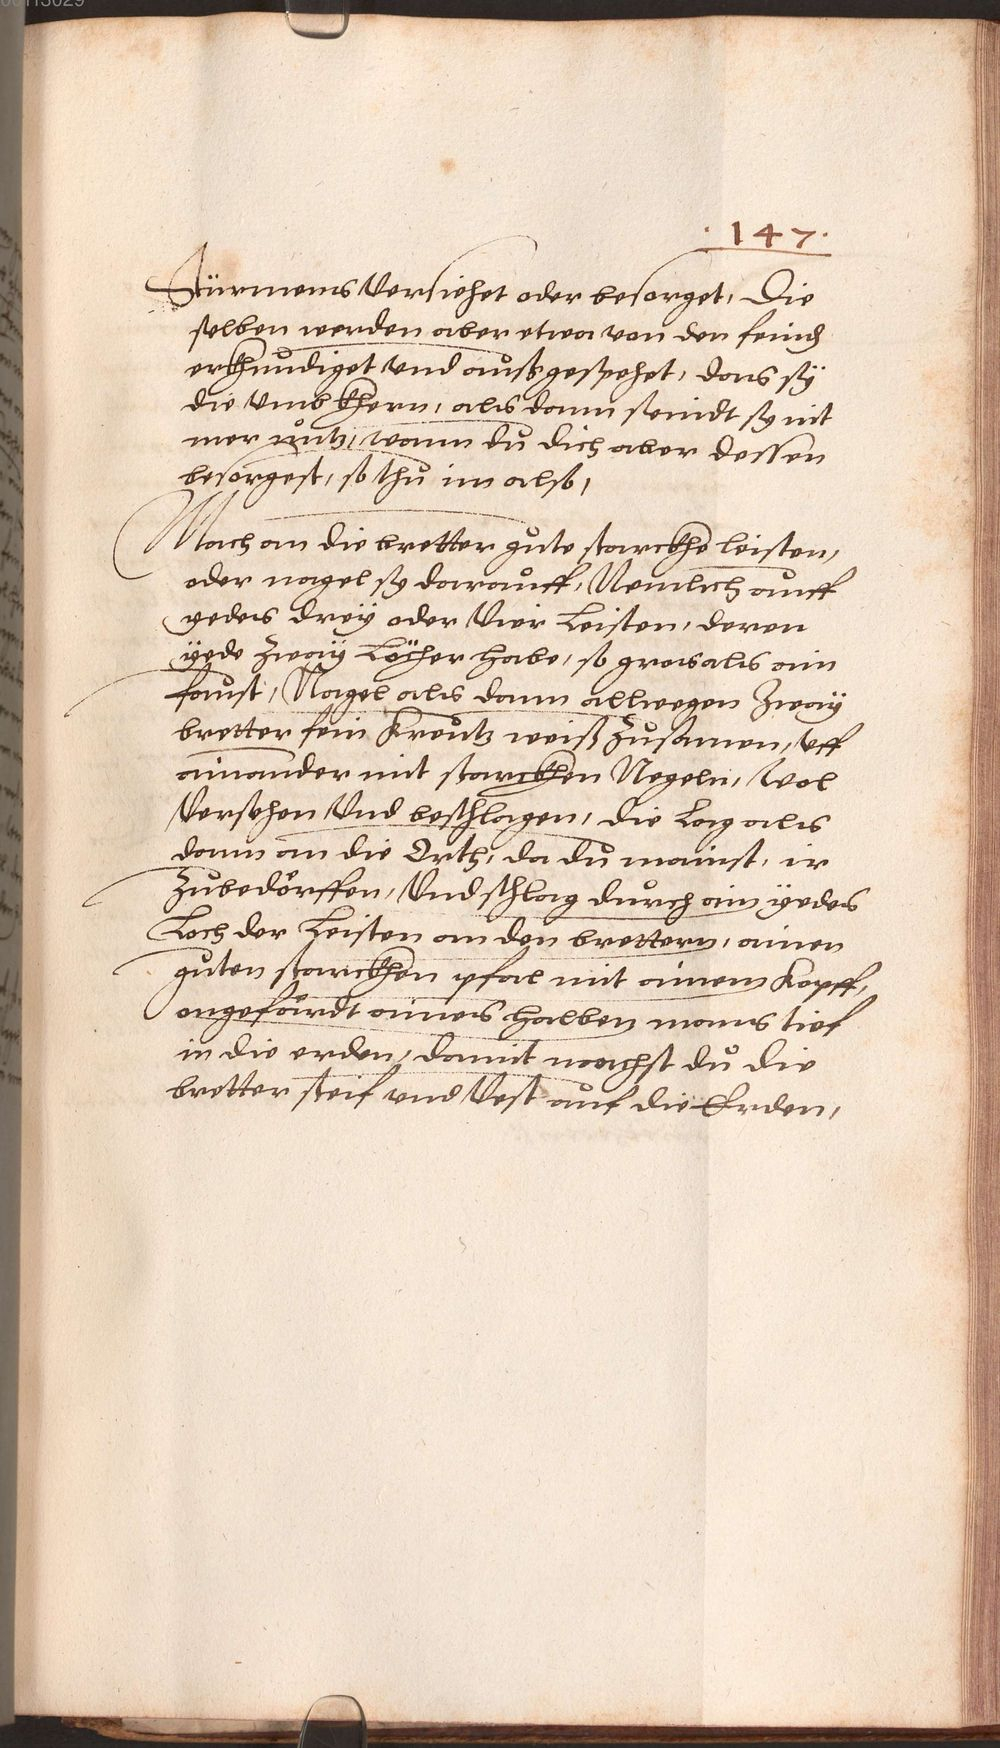 ·147·
Stürmens versiehet oder besorget, Die
selben werden aber etwa von den feinden
erkhundiget vnd außgespehet, das sÿ
die vmbkhern, als dann seindt sy nit
mer nutz, wann du dich aber dessen
besorgest, so thu im also,
Mach an die bretter gute starckhe leisten,
oder nagel sy darauff, Nemlich auff
yedes dreÿ oder vier Leisten, deren
ÿede zwaÿ Löcher habe, so gros als ain
faust, Nagel als dann allwegen zwaÿ
bretter fein Kreutz weiß zusamen, vff
ainander mit starckhen Negeln, wol
versehen vnd beschlagen, die Leg als
dann an die Orth, da du mainst, ir
zubedörffen, vnd schlag durch ain ÿedes
Loch der Leisten an den brettern, ainen
guten starckhen pfal mit ainem Kopff,
ongefärdt aines halben mans tief
in die erden, damit machst du die
bretter steif vnd vest auf die Erden,